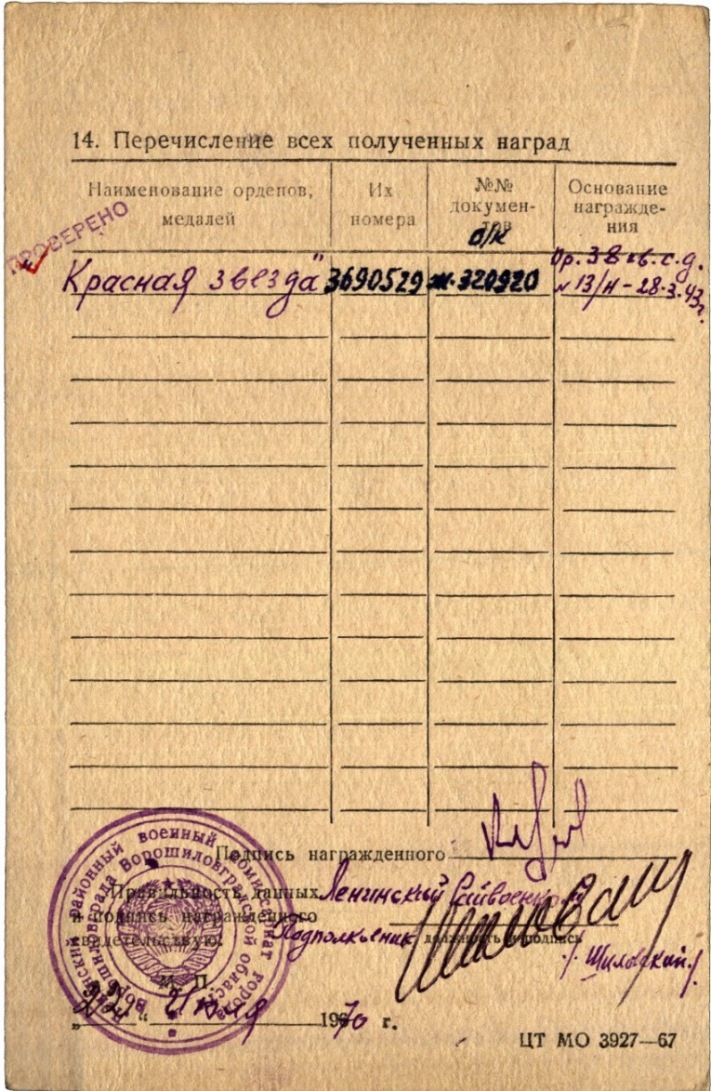 14. Перечисление всех полученных наград
Наименование орденов, медалей
Их номера
№№ докумен-тов
Основание награжде-ния
ПРОВЕРЕНО
о/к
Красная звезда" 3690529 ж.320920 Пр. 38 гв.с.д.
№ 13/н - 28.3.43г.
Подпись награжденного
Правильность данных Ленинский Райвоенком
и подпись награжденного
свидетельствую: Подполковник должность и подпись
/. Шиловский./
М. П.
„22" июля 1970 г.
ЦТ МО 3927—67
районный военный комиссариат города
Ворошиловграда Ворошиловградской области